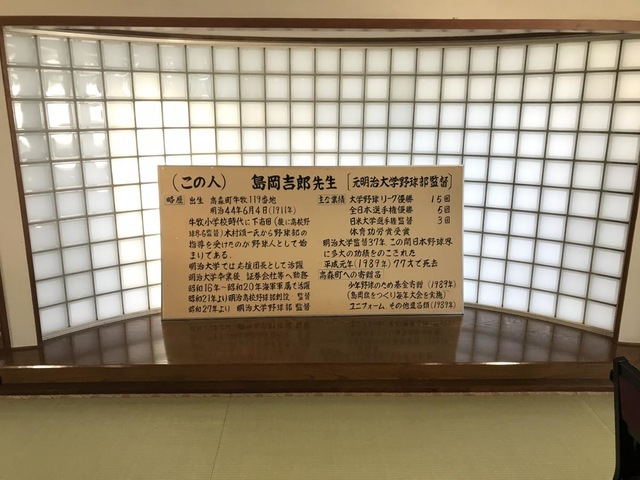 (この人) 島岡吉郎先生 [元明治大学野球部監督]
略歴 出生 高森町牛牧119番地
明治44年6月4日(1911年)
牛牧小学校時代に下市田(後に高校野
球界の監督)木村頌一氏から野球部の
指導を受けたのが野球人として始
まりである.
明治大学では応援団長として活躍
明治大学卒業後 証券会社等へ勤務
昭和16年〜昭和20年海軍軍属で活躍
昭和21年より明治高校野球部創設 監督
昭和27年より 明治大学野球部 監督
主な業績 大学野球リーグ優勝 15回
全日本選手権優勝 5回
日米大学選手権監督 3回
体育功労賞受賞
明治大学監督37年 この間日本野球界
に多大の功績をのこされた
平成元年(1989年) 77才で死去
高森町への寄贈品
少年野球のため基金寄贈 (1989年)
(島岡旗をつくり毎年大会を実施)
ユニフォーム その他遺品類(1989年)